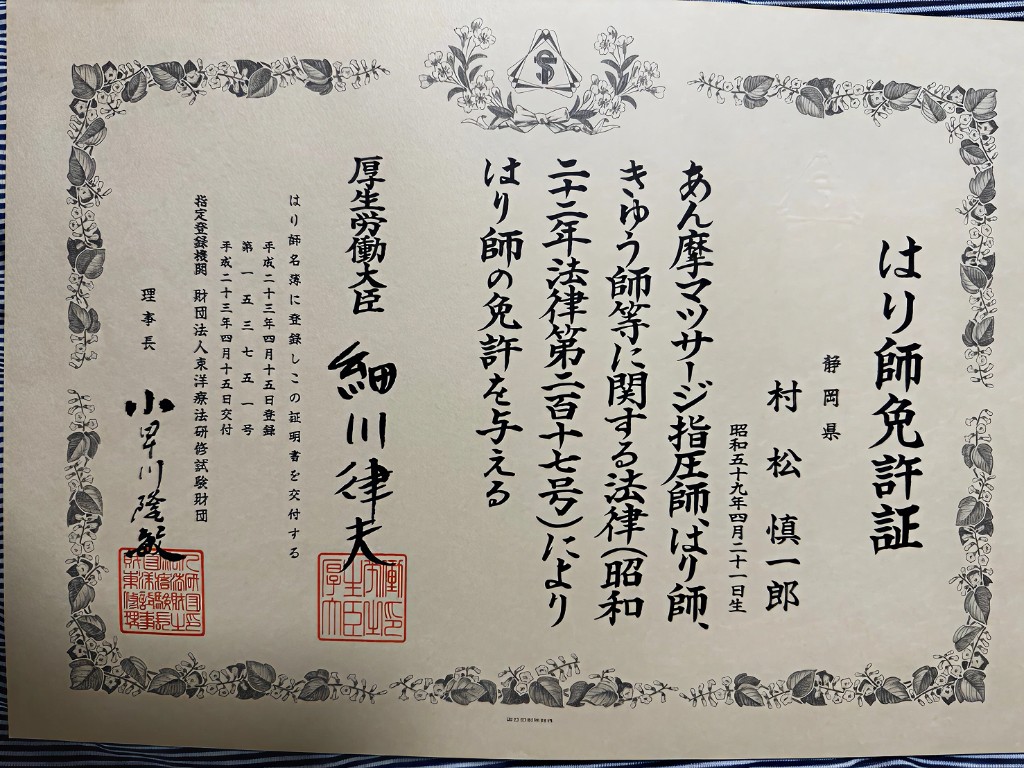 はり師免許証
静岡県
村松慎一郎
昭和五十九年四月二十一日生
あん摩マツサージ指圧師、はり師、
きゆう師等に関する法律（昭和
二十二年法律第二百十七号）により
はり師の免許を与える
厚生労働大臣 細川律夫
はり師名簿に登録しこの証明書を交付する
平成二十三年四月十五日登録
第一五三七五一号
平成二十三年四月十五日交付
指定登録機関 財団法人東洋療法研修試験財団
理事長 小早川隆敏